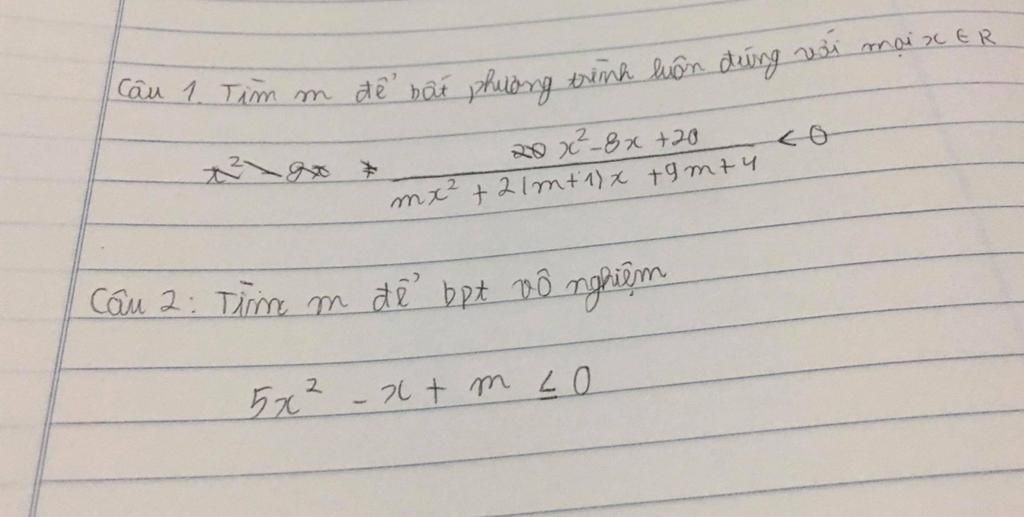 Câu 1. Tìm m để bất phương trình luôn đúng với mọi x ∈ R
x² - 8x + 20 / mx² + 2(m+1)x + 9m + 4 < 0
Câu 2: Tìm m để bpt vô nghiệm
5x² - x + m ≤ 0